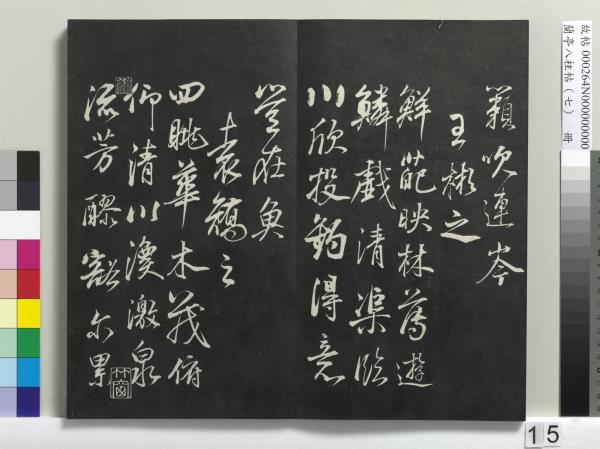 籟吹連岑
王彬之
鮮葩映林薄遊
鱗戲清渠臨
川欣投釣得意
豈在魚
袁嶠之
四眺華木茂俯
仰清川渙激泉
流芳醪豁尓累
故帖 000264N000000000
蘭亭八柱帖（七） 冊
15